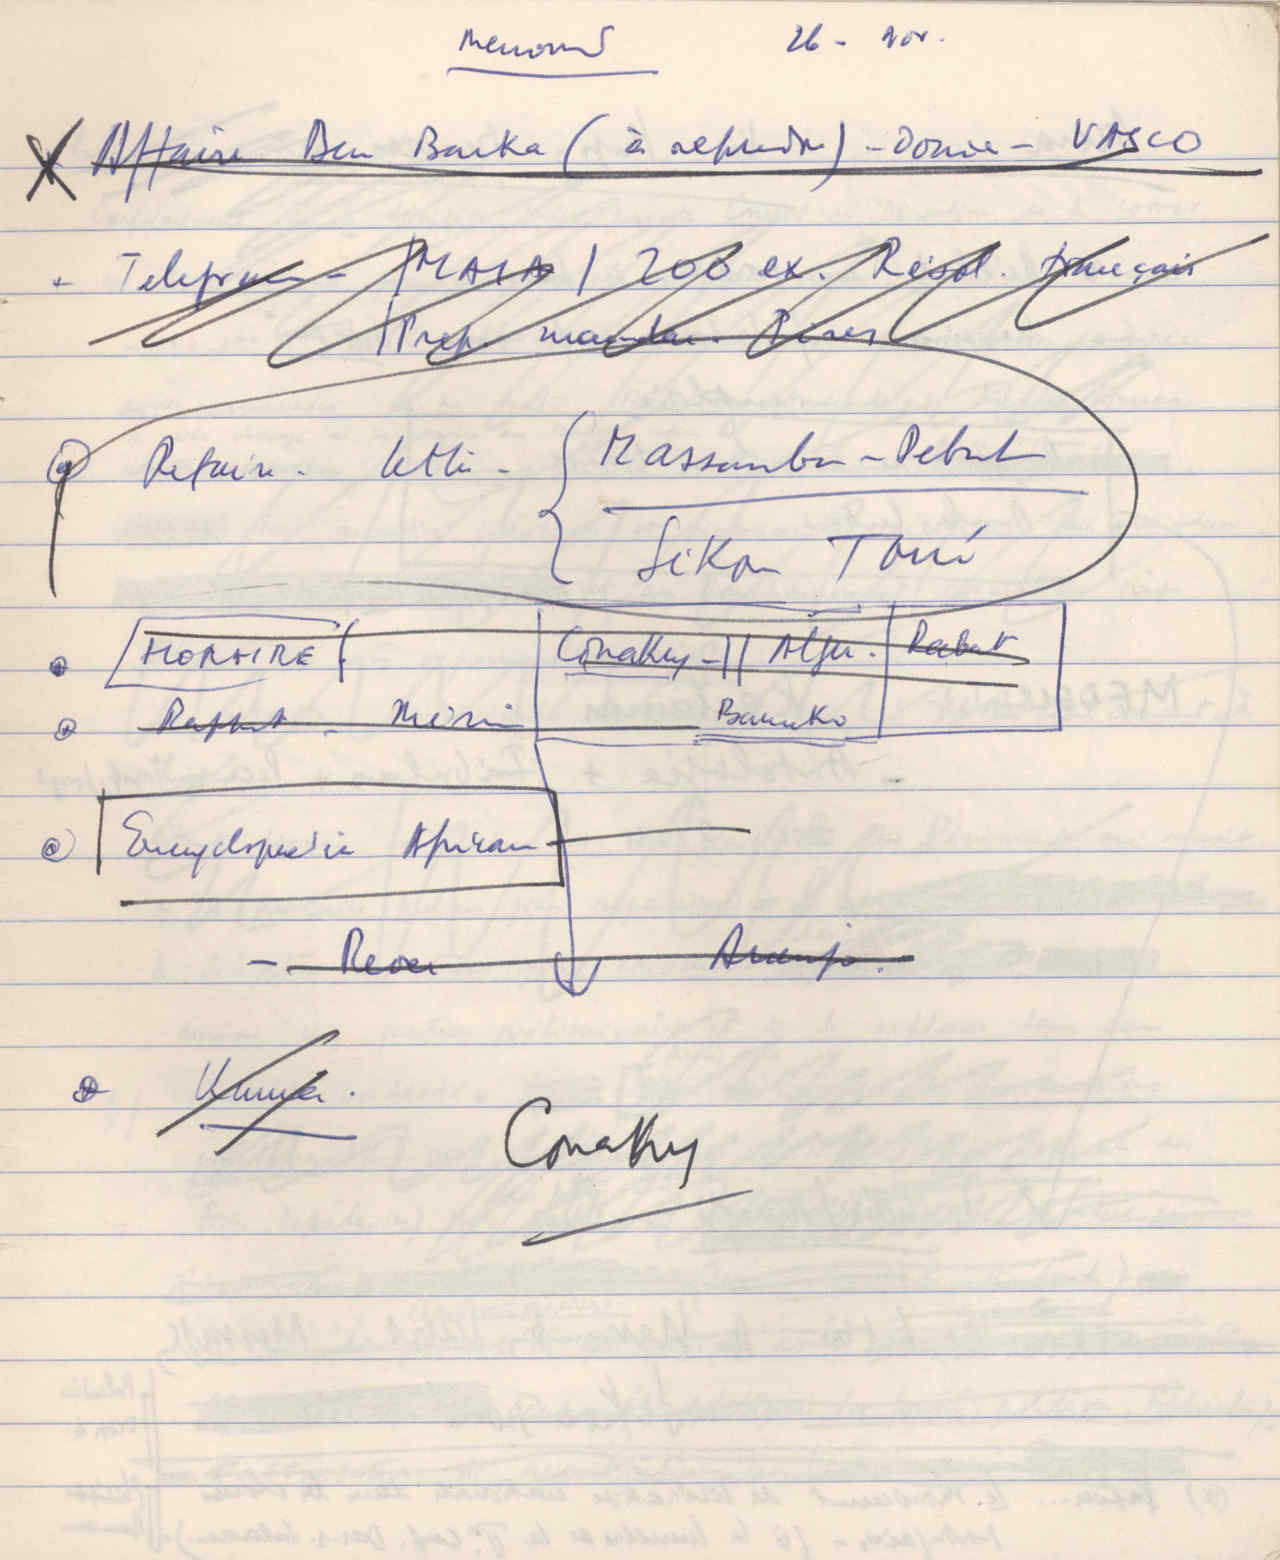 26 - Nov.
Affaire Ben Barka (à reprendre) - Donie - VASCO
Telegram - MASA / 200 ex. Résol. français
Prep. mandar. Peres
Refaire - lettre - Massamba-Debat
Sékou Touré
HORAIRE Conakry - || Alger. Rabat
Rapport - Bamako
Encyclopédie African
- Rever Araujo.
Conakry